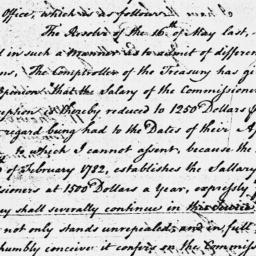 Office, which is as follows.
The Resolve of the 16th of May last, 
d in such a Manner as to admit of differen
ns, The Comptroller of the Treasury has gi
Opinion, That the Salary of the Commissione
ception is thereby reduced to 1250 Dollars
regard being had to the Dates of their A
to which I cannot assent, because the
of February 1782, establishes the Sallary
sioners at 1500 Dollars a Year, expressly
ey shall severally continue in this Service
not only stands unrepealed; and in full
humbly conceive it confers on the Commiss